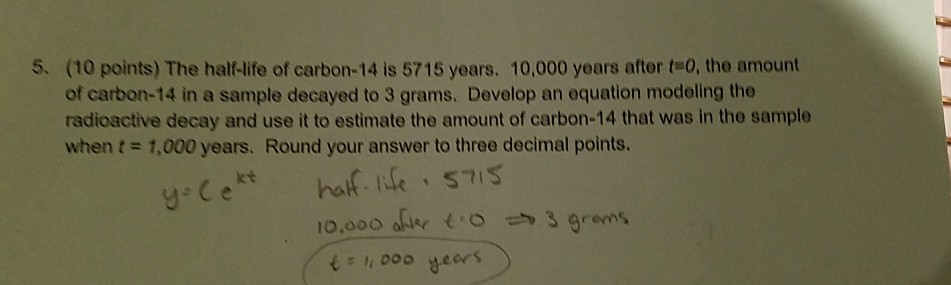 5. (10 points) The half-life of carbon-14 is 5715 years. 10,000 years after t=0, the amount
of carbon-14 in a sample decayed to 3 grams. Develop an equation modeling the
radioactive decay and use it to estimate the amount of carbon-14 that was in the sample
when t = 1,000 years. Round your answer to three decimal points.
y=Ce^kt half-life · 5715
10,000 after t=0 ⇒ 3 grams
t = 1,000 years